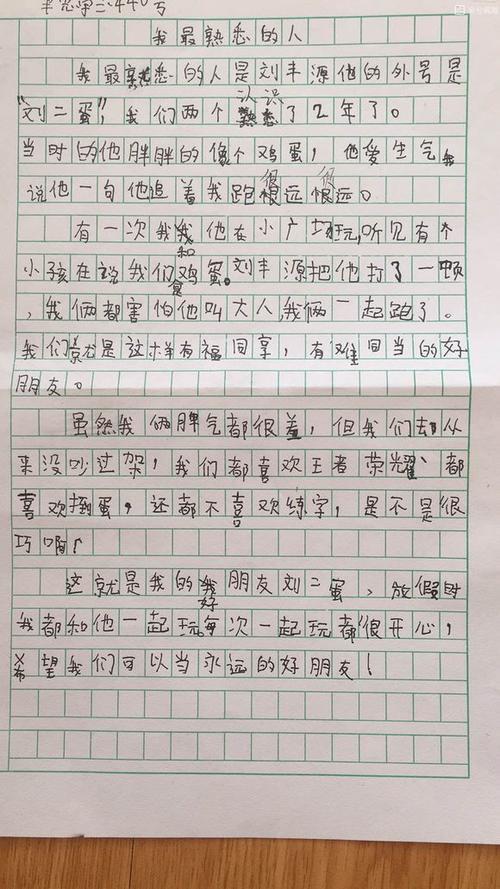 我最熟悉的人
我最熟悉的人是刘丰源他的外号是
"刘二蛋",我们两个认识了2年了。
当时的他胖胖的像个鸡蛋,他爱生气我
说他一句他追着我跑很远很远。
有一次我和他在小广场玩,听见有个
小孩在说我们是鸡蛋。刘丰源把他打了一顿
,我俩都害怕他叫大人我俩一起跑了。
我们就是这样有福同享,有难同当的好
朋友。
虽然我俩脾气都很差,但我们却从
来没吵过架,我们都喜欢王者荣耀、都
喜欢捣蛋,还都不喜欢练字,是不是很
巧啊!
这就是我的好朋友刘二蛋,放假时
我都和他一起玩。每次一起玩都很开心,
希望我们可以当永远的好朋友!